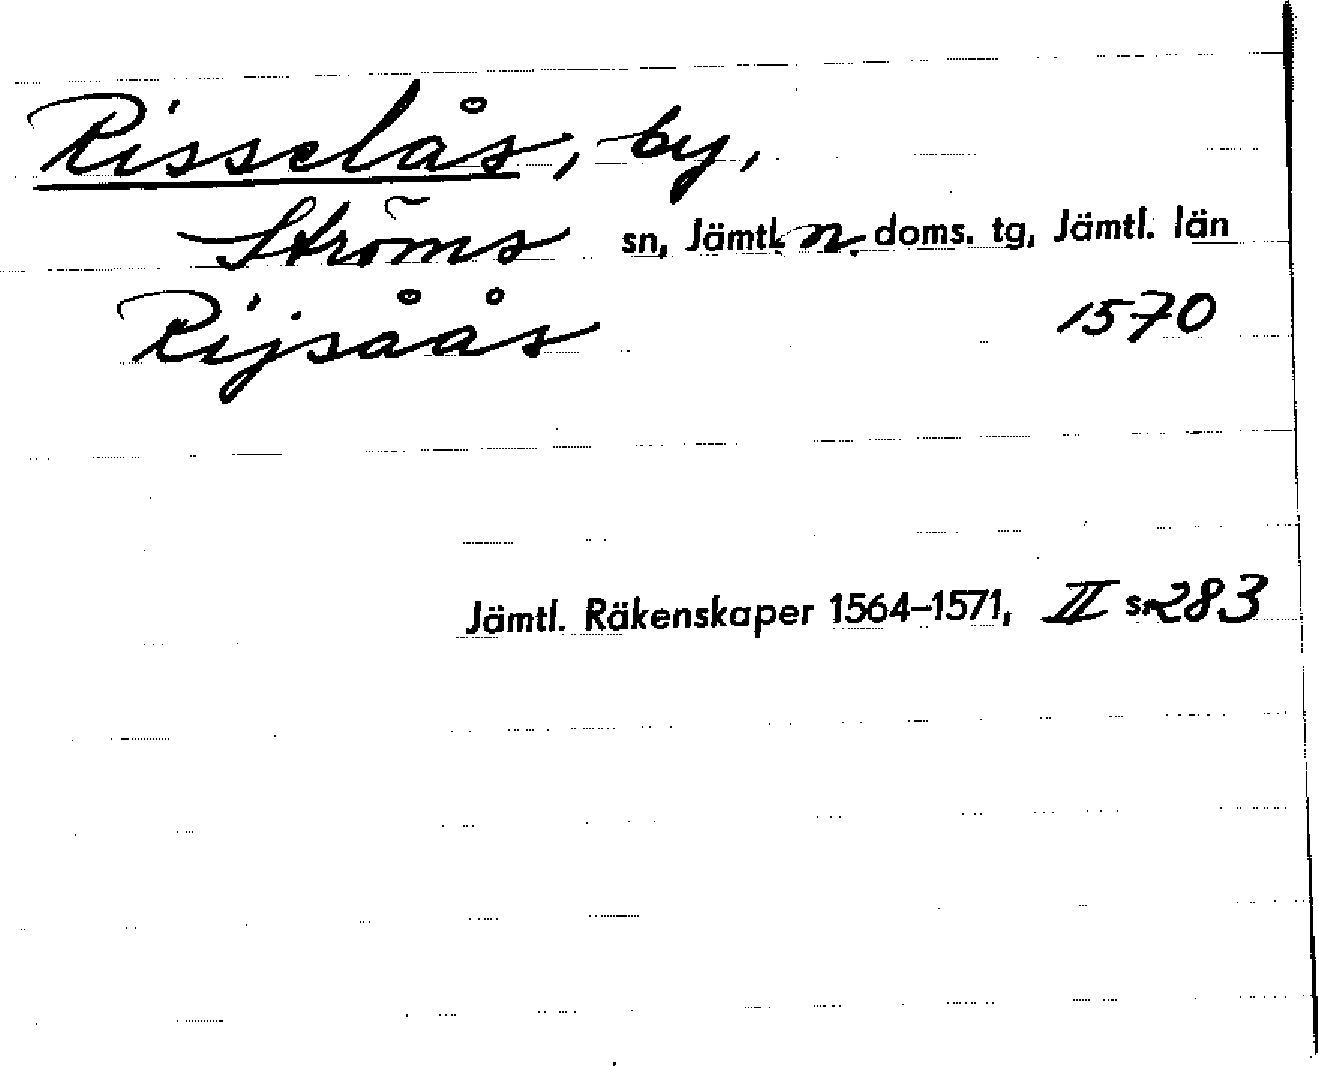 Risselås, by,
Ströms sn, Jämtl. n. doms. tg, Jämtl. län
Rijsåås 1570
Jämtl. Räkenskaper 1564–1571, II s. 283